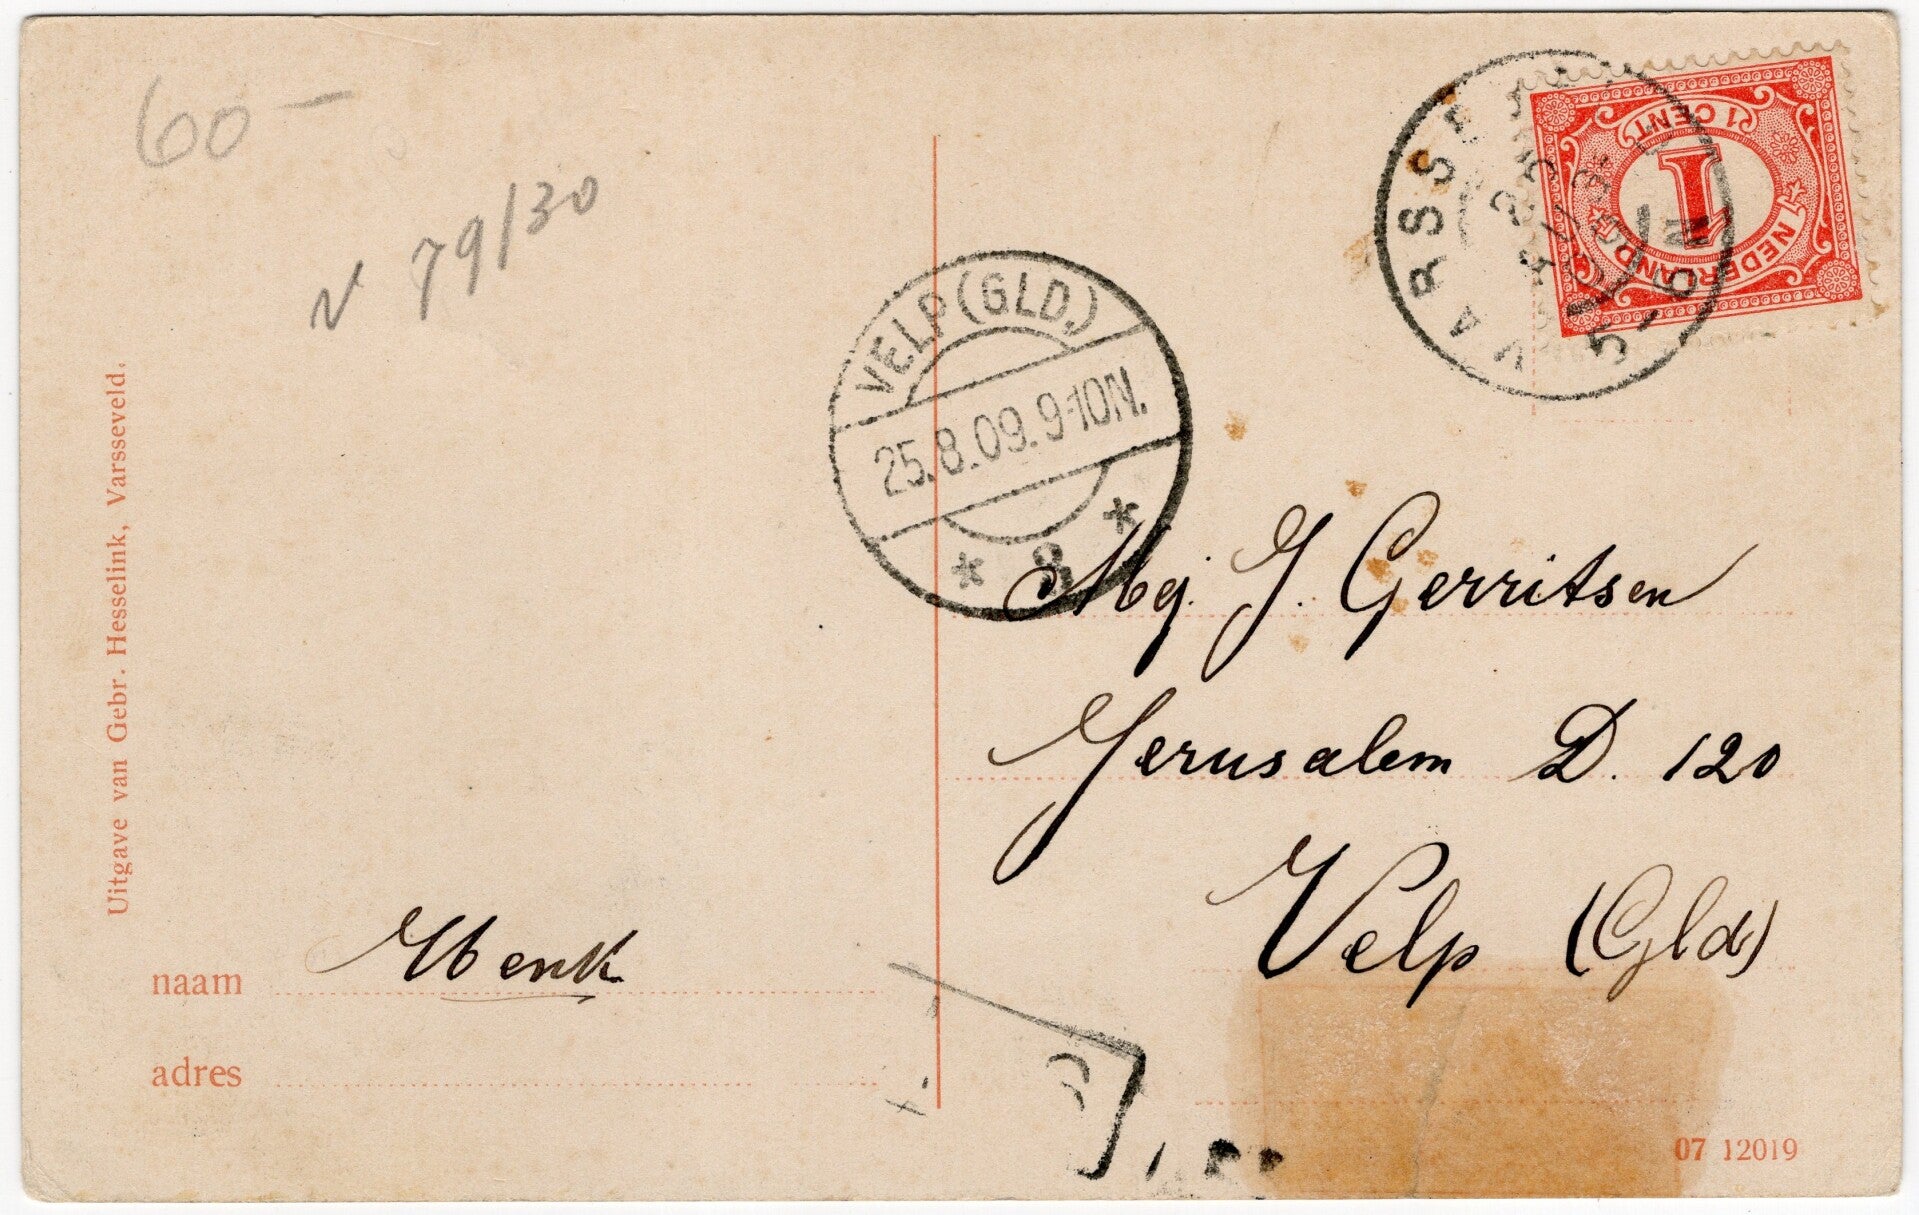 60 -
N 79/30
VELP (GLD.)
25.8.09.9-10N.
* 8 *
VARSSEVELD
5-6N
1 CENT
1
NEDERLAND
Mej. J. Gerritsen
Jerusalem D. 120
Velp (Gld)
Uitgave van Gebr. Hesselink, Varsseveld.
naam Henk
adres
07 12019